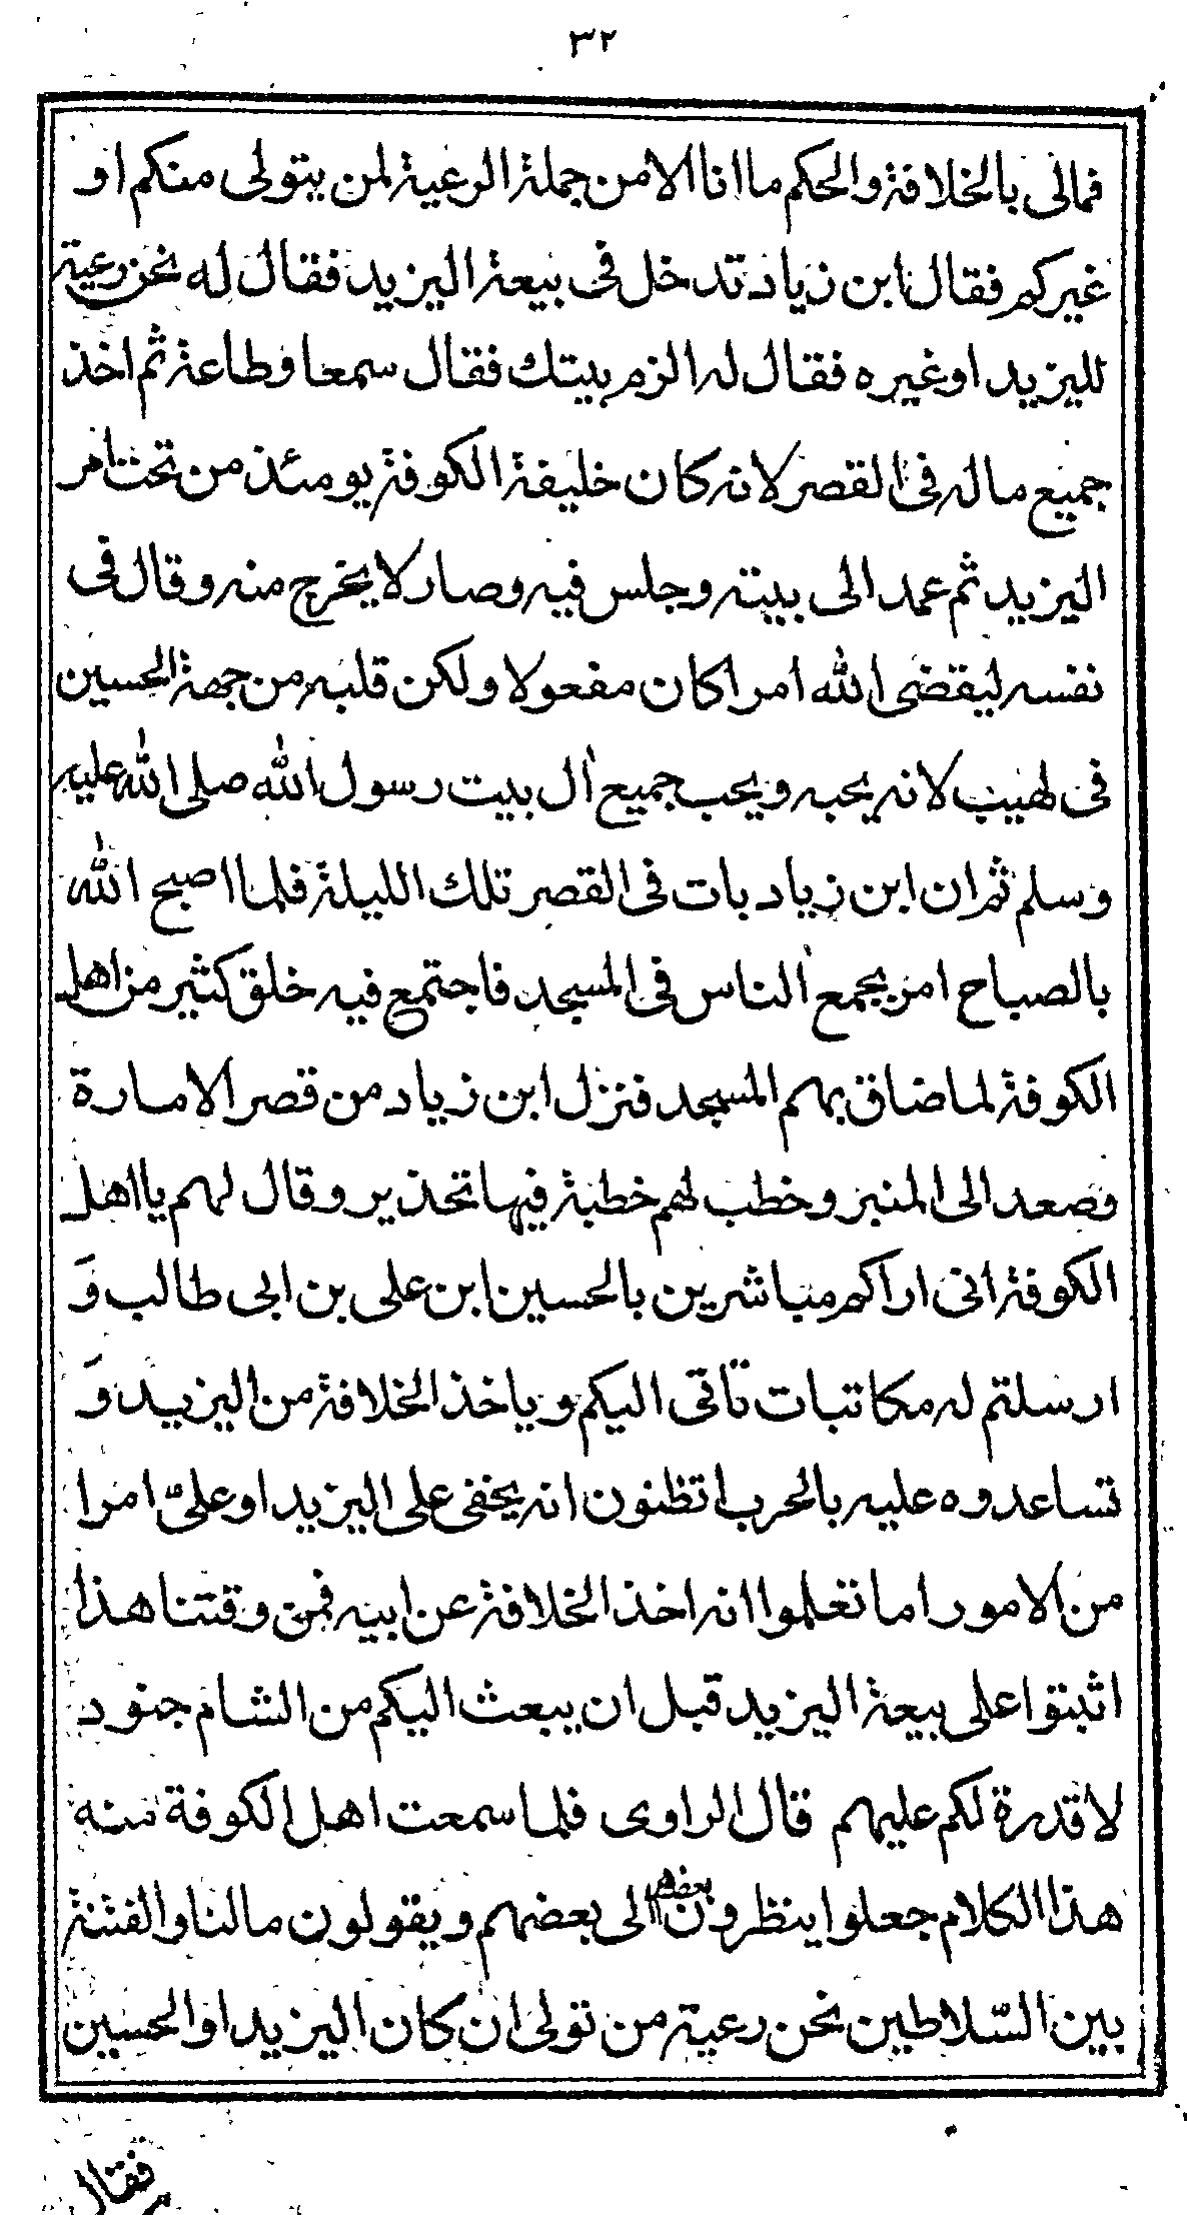 ٣٢
فمالى بالخلافة والحكم ما انا الا من جملة الرعية لمن يتولى منكم او
غيركم فقال ابن زياد تدخل فى بيعة اليزيد فقال له نحن رعية
لليزيد او غيره فقال له الزم بيتك فقال سمعا وطاعة ثم اخذ
جميع ماله فى القصر لانه كان خليفة الكوفة يومئذ من تحت امر
اليزيد ثم عمد الى بيته وجلس فيه وصار لا يخرج منه وقال فى
نفسه ليقضى الله امرا كان مفعولا ولكن قلبه من جهة الحسين
فى لهيب لانه يحبه ويحب جميع ال بيت رسول الله صلى الله عليه
وسلم ثم ان ابن زياد بات فى القصر تلك الليلة فلما اصبح الله
بالصباح امر بجمع الناس فى المسجد فاجتمع فيه خلق كثير من اهل
الكوفة لما ضاق بهم المسجد فنزل ابن زياد من قصر الامارة
وصعد الى المنبر وخطب لهم خطبة فيها تحذير وقال لهم يا اهل
الكوفة انى اراكم مباشرين بالحسين ابن على بن ابى طالب وَ
ارسلتم له مكاتبات تاتى اليكم وياخذ الخلافة من اليزيد وَ
تساعدوه عليه بالحرب اتظنون انه يخفى على اليزيد او علىّ امرا
من الامور اما تعلموا انه اخذ الخلافة عن ابيه فمن وقتنا هذا
اثبتوا على بيعة اليزيد قبل ان يبعث اليكم من الشام جنود
لا قدرة لكم عليهم قال الراوى فلما سمعت اهل الكوفة منه
هذا الكلام جعلوا ينظرون بعضهم الى بعضهم ويقولون مالنا والفتنة
بين السّلاطين نحن رعية من تولى ان كان اليزيد او الحسين
فقال